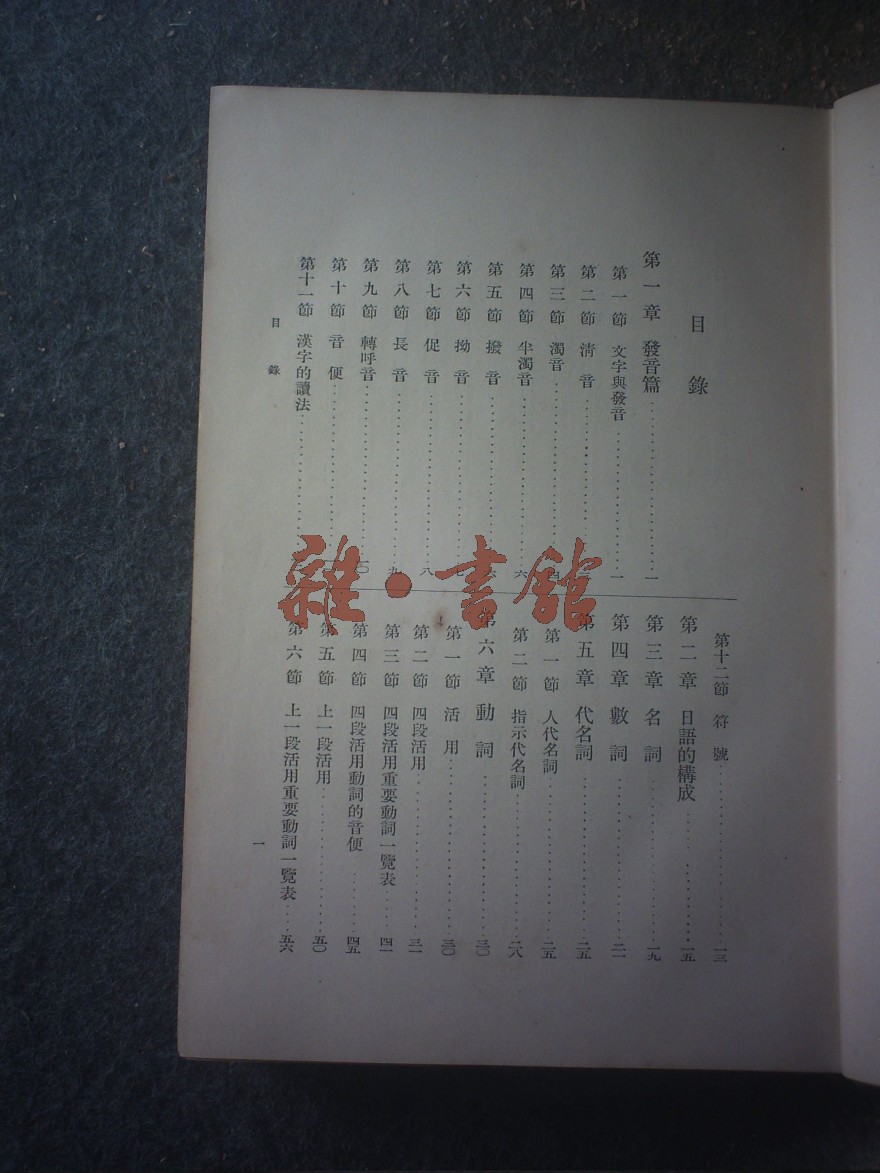 目錄
第一章 發音篇……一
第一節 文字與發音……一
第二節 淸音
第三節 濁音……四
第四節 半濁音……六
第五節 撥音……六
第六節 拗音……七
第七節 促音……八
第八節 長音……九
第九節 轉呼音……一〇
第十節 音便
第十一節 漢字的讀法
第十二節 符號……一三
第二章 日語的構成……一五
第三章 名詞……一九
第四章 數詞……二一
第五章 代名詞……二五
第一節 人代名詞……二五
第二節 指示代名詞……二八
第六章 動詞……三〇
第一節 活用……三〇
第二節 四段活用……三一
第三節 四段活用重要動詞一覽表……四一
第四節 四段活用動詞的音便……四五
第五節 上一段活用……五〇
第六節 上一段活用重要動詞一覽表……五六
目錄
一
雜·書館